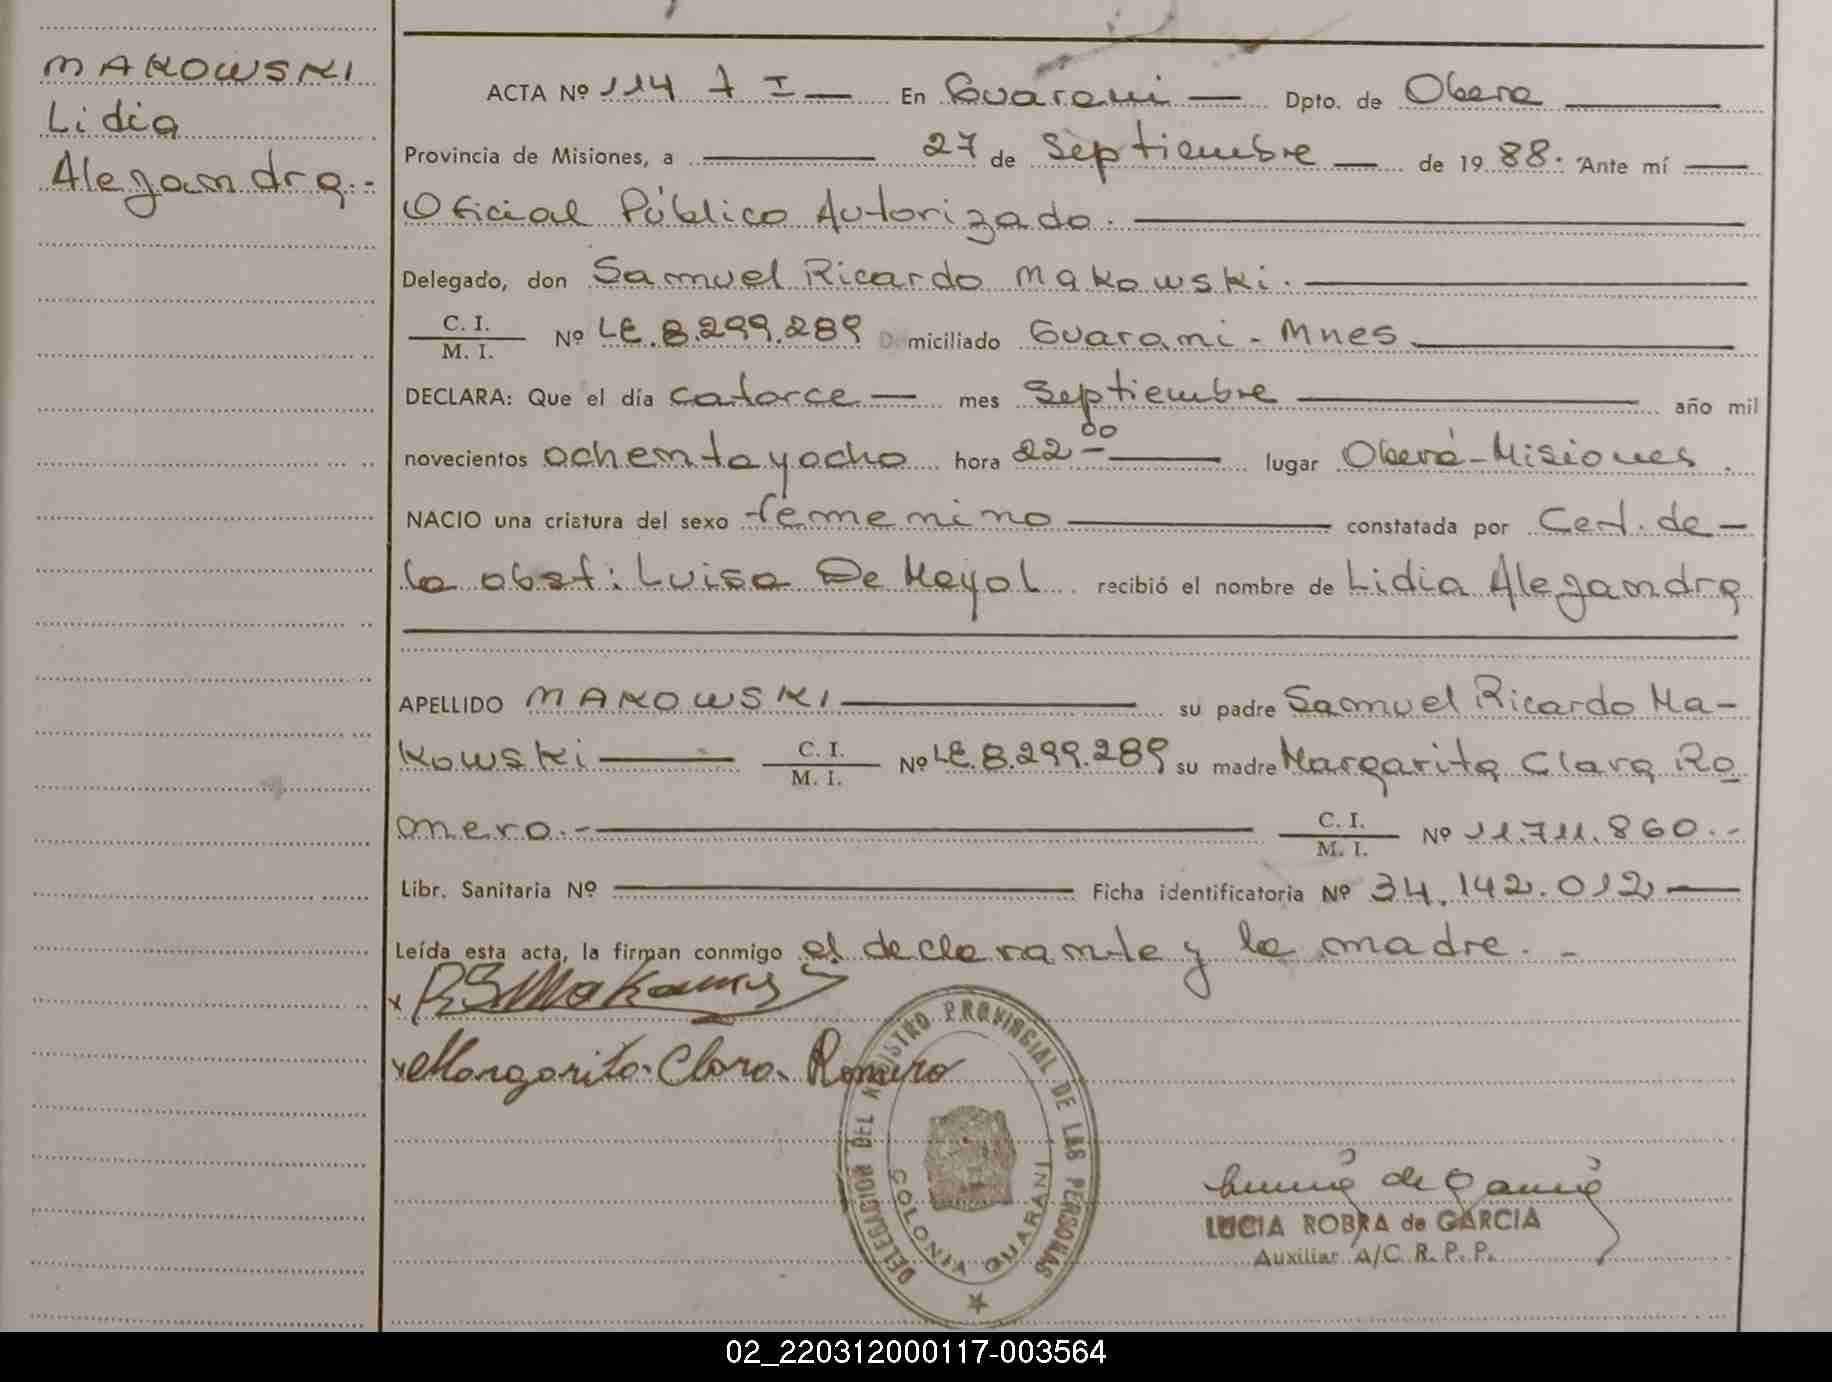 MAKOWSKI
Lidia
Alejandra.-
ACTA Nº 114 T I — En Guarani — Dpto. de Obera
Provincia de Misiones, a 27 de Septiembre — de 1988. Ante mí
Oficial Público Autorizado.
Delegado, don Samuel Ricardo Makowski.
C. I.
M. I. Nº LE.8.299.289 Domiciliado Guarani - Mnes
DECLARA: Que el día catorce — mes Septiembre año mil
novecientos ochenta y ocho hora 22 00 lugar Oberá-Misiones.
NACIO una criatura del sexo femenino constatada por Cert. de -
la obst: Luisa De Mayol recibió el nombre de Lidia Alejandra
APELLIDO MAKOWSKI su padre Samuel Ricardo Ma-
kowski C. I.
M. I. Nº LE.8.299.289 su madre Margarita Clara Ro
mero.- C. I.
M. I. Nº 11.711.860.-
Libr. Sanitaria Nº Ficha identificatoria Nº 34.142.012
Leída esta acta, la firman conmigo el declarante y la madre. -
x RSMakowski
x Margarita Clara Romero
DELEGACION DEL REGISTRO PROVINCIAL DE LAS PERSONAS
COLONIA GUARANI
LUCIA ROBRA de GARCIA
Auxiliar A/C R. P. P.
02_220312000117-003564